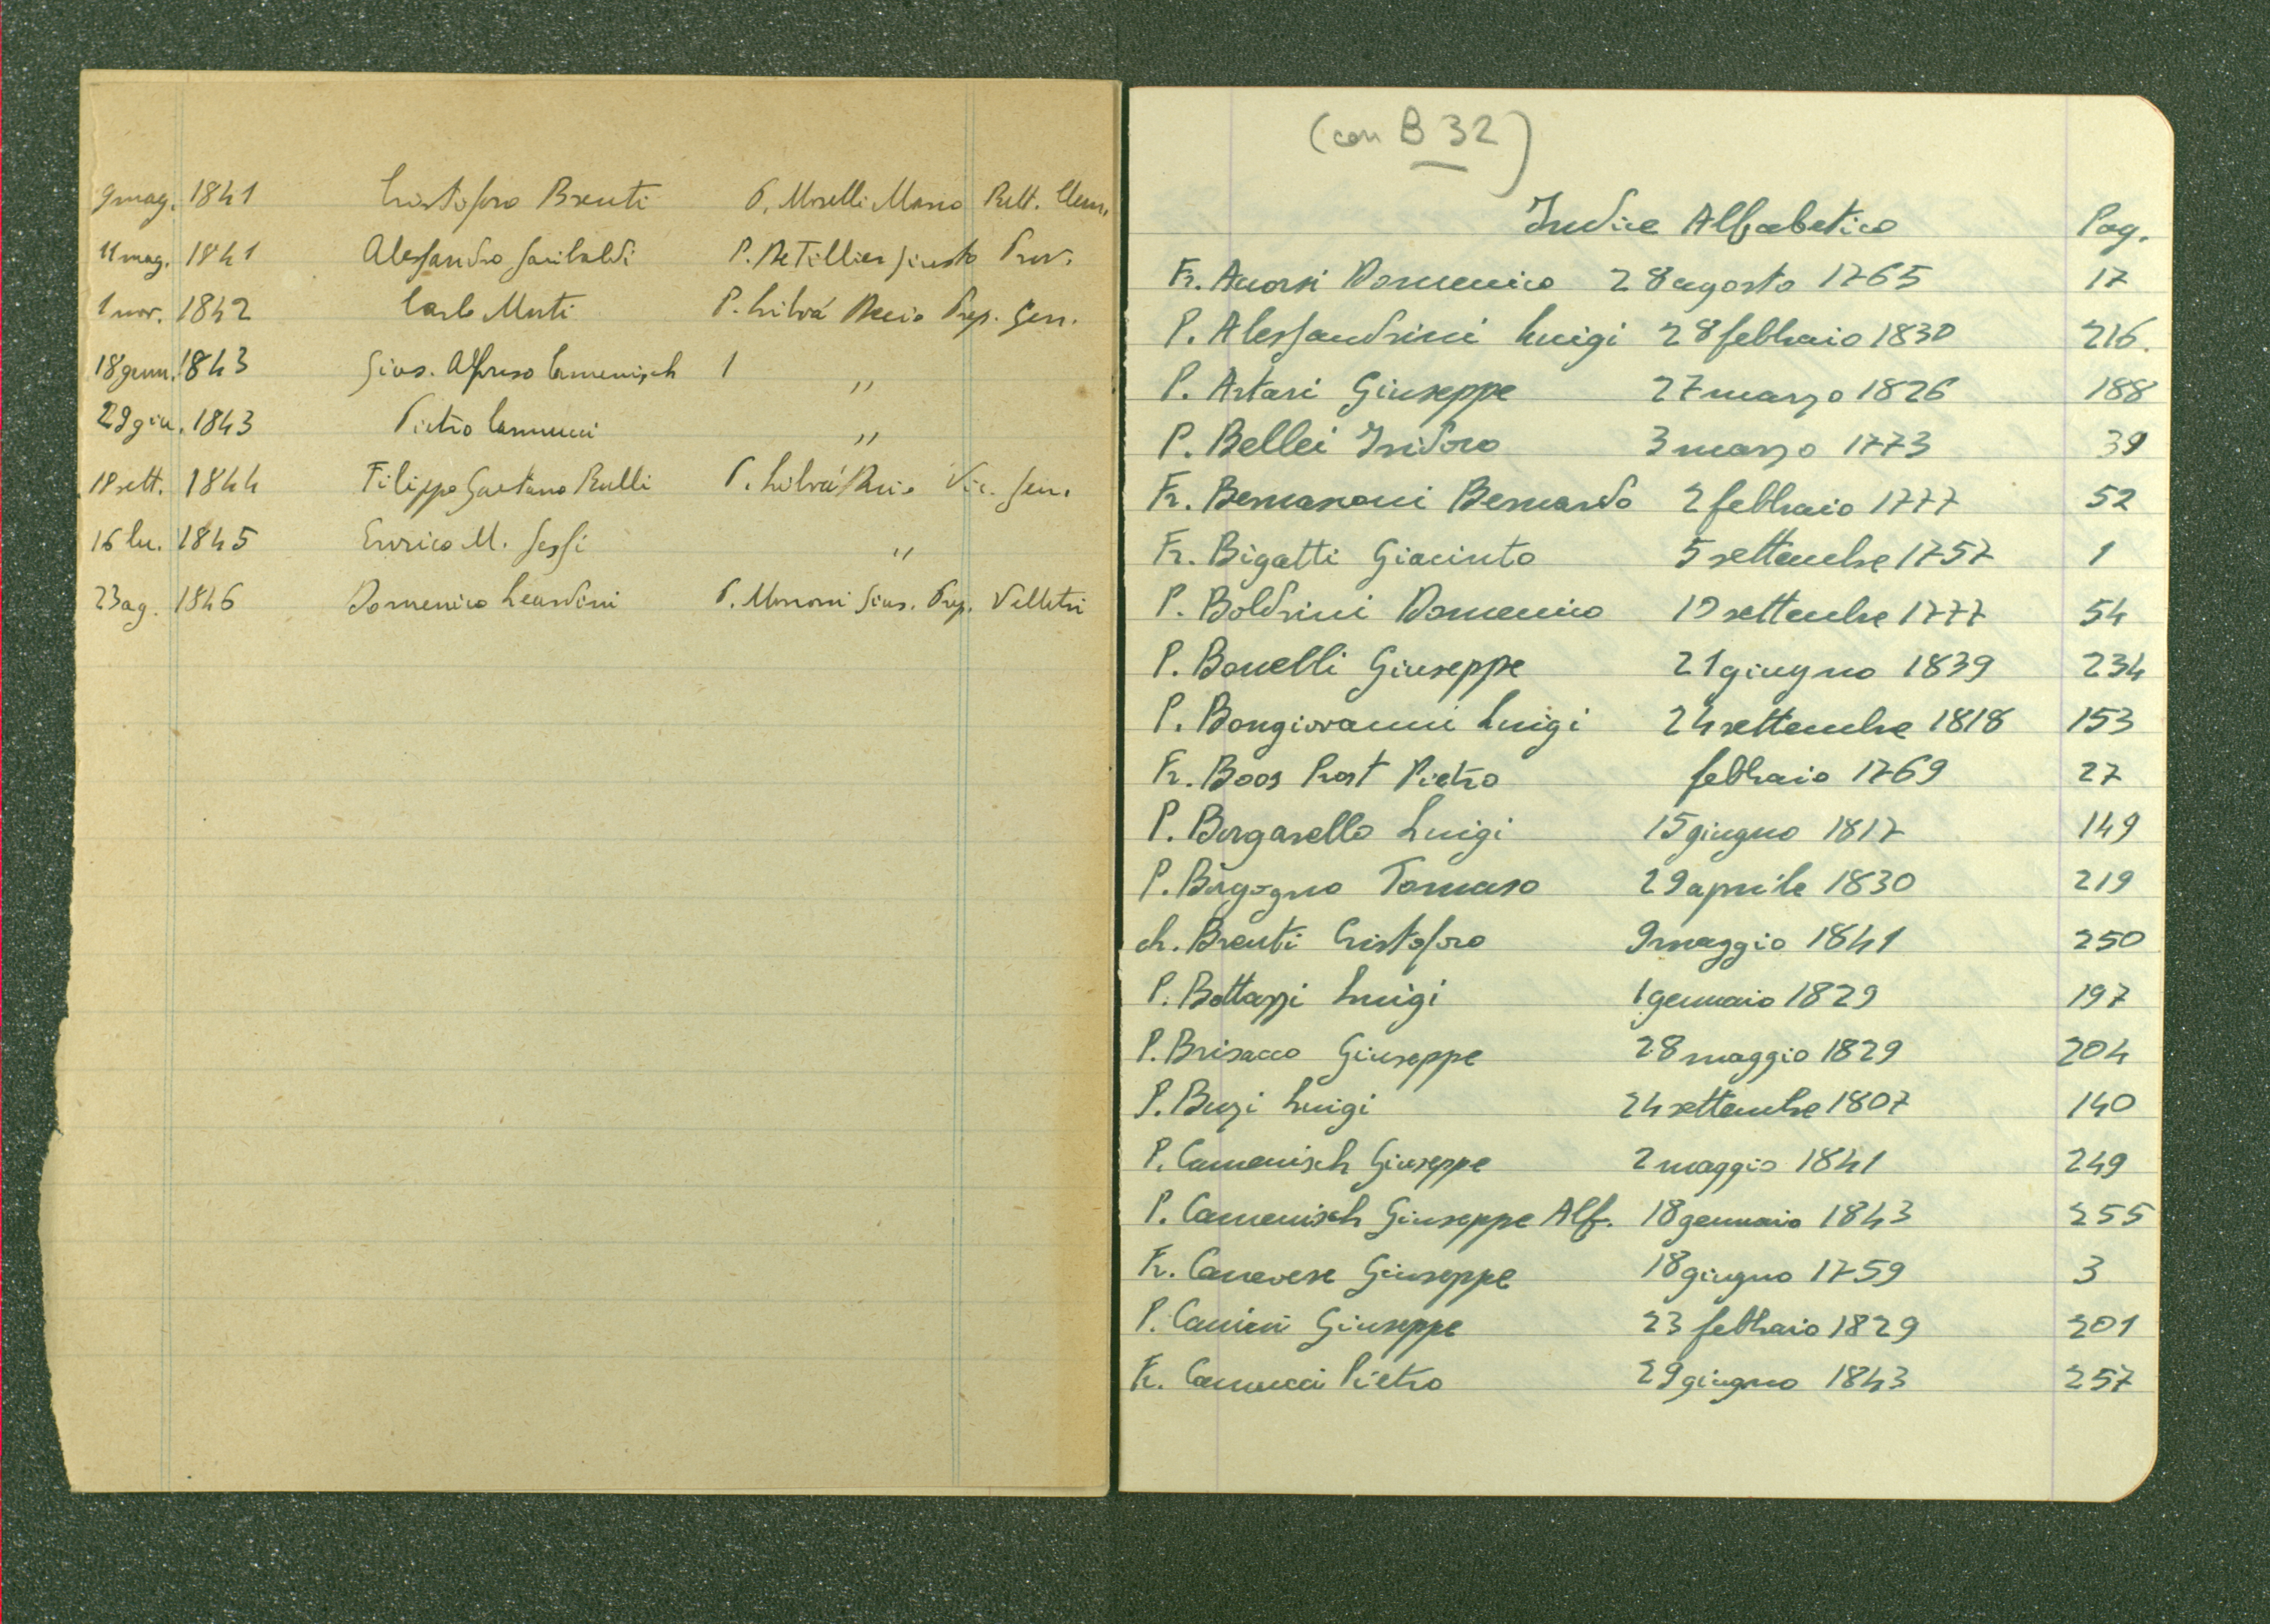 9 mag. 1841 Cristoforo Brenti P. Morelli Marco Rett. Clem.
11 mag. 1841 Alessandro Garibaldi P. De Tillier Giusto Prov.
1 nov. 1842 Carlo Muti P. Librá Decio Prep. Gen.
18 genn. 1843 Gius. Alfonso Camenisch 1 "
29 giu. 1843 Pietro Canucci "
18 sett. 1844 Filippo Gaetano Rulli P. Librá Decio Vic. Gen.
16 lu. 1845 Enrico M. Gessi "
23 ag. 1846 Domenico Leardini P. Morroni Gius. Prep. Velletri
(con B 32)
Indice Alfabetico Pag.
Fr. Acorsi Domenico 28 agosto 1765 17
P. Alessandrini Luigi 28 febbraio 1830 216.
P. Artari Giuseppe 27 marzo 1826 188
P. Bellei Isidoro 3 marzo 1773 39
Fr. Bernasconi Bernardo 2 febbraio 1777 52
Fr. Bigatti Giacinto 5 settembre 1757 1
P. Boldrini Domenico 19 settembre 1777 54
P. Bonelli Giuseppe 21 giugno 1839 234
P. Bongiovanni Luigi 24 settembre 1818 153
Fr. Boos Prost Pietro febbraio 1769 27
P. Borgarello Luigi 15 giugno 1817 149
P. Borgogno Tomaso 29 aprile 1830 219
ch. Brenti Cristoforo 9 maggio 1841 250
P. Bottazzi Luigi 1 gennaio 1829 197
P. Brisacco Giuseppe 28 maggio 1829 204
P. Buzi Luigi 24 settembre 1807 140
P. Camenisch Giuseppe 2 maggio 1841 249
P. Camenisch Giuseppe Alf. 18 gennaio 1843 255
Fr. Canevese Giuseppe 18 giugno 1759 3
P. Canini Giuseppe 23 febbraio 1829 201
Fr. Canucci Pietro 29 giugno 1843 257